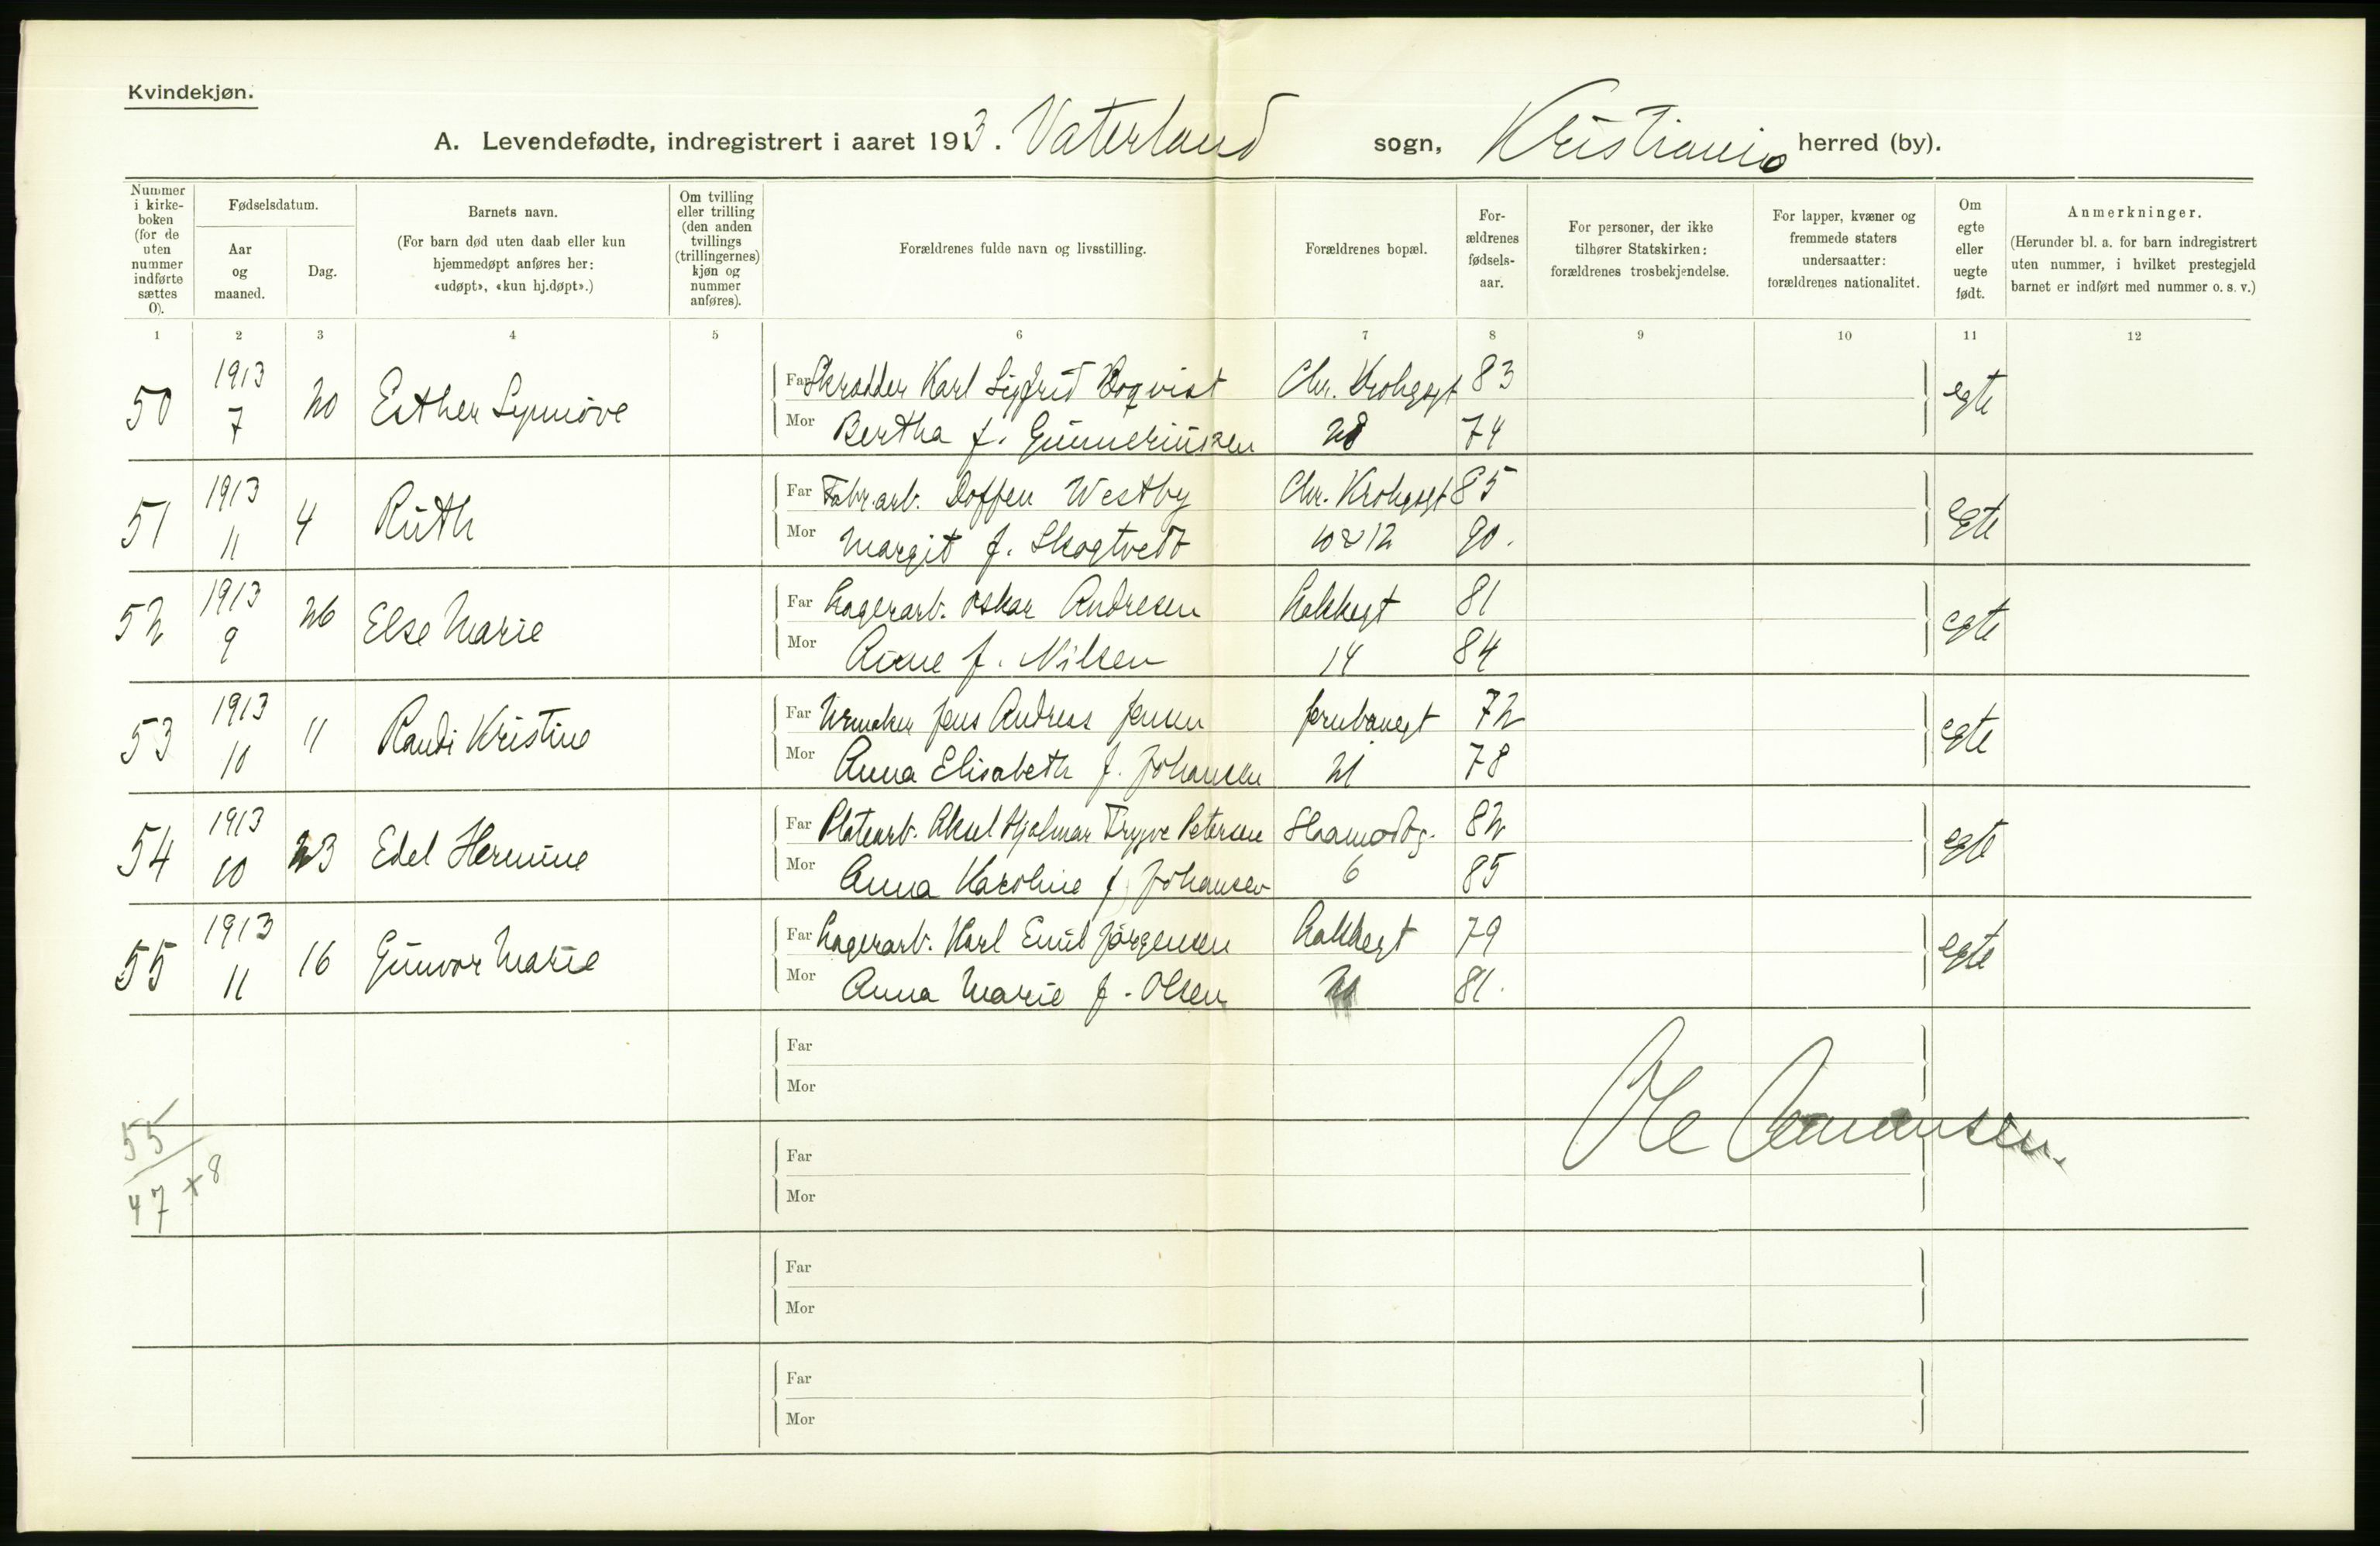 Kvindekjøn.
A. Levendefødte, indregistrert i aaret 1913. Vaterland sogn, Kristiania herred (by).
Nummer i kirke-boken (for de uten nummer indførte sættes 0).
Fødselsdatum.
Aar og maaned.
Dag.
Barnets navn.
(For barn død uten daab eller kun hjemmedøpt anføres her: «udøpt», «kun hj.døpt».)
Om tvilling eller trilling (den anden tvillings (trillingernes) kjøn og nummer anføres).
Forældrenes fulde navn og livsstilling.
Forældrenes bopæl.
For-ældrenes fødsels-aar.
For personer, der ikke tilhører Statskirken: forældrenes trosbekjendelse.
For lapper, kvæner og fremmede staters undersaatter: forældrenes nationalitet.
Om egte eller uegte født.
Anmerkninger.
(Herunder bl. a. for barn indregistrert uten nummer, i hvilket prestegjeld barnet er indført med nummer o. s. v.)
1 2 3 4 5 6 7 8 9 10 11 12
50 1913 7 20 Esther Synnøve
Far Skrædder Karl Sigfrid Boqvist Chr. Krohgsgt 83 egte
Mor Bertha f. Gunneriussen 28 74
51 1913 11 4 Ruth
Far Fabr.arb. Doffen Westby Chr. Krohgsgt 85 egte
Mor Margit f. Skogtvedt 10 & 12 90.
52 1913 9 26 Else Marie
Far Lagerarb. Oskar Andresen Lakkegt 81 egte
Mor Anne f. Nilsen 14 84
53 1913 10 11 Randi Kristine
Far Urmaker Jens Andreas Jensen Jernbanegt 72 egte
Mor Anna Elisabeth f. Johansen 21 78
54 1913 10 23 Edel Hermine
Far Platearb. Aksel Hjalmar Trygve Petersen 82 egte
Mor Anna Karoline f. Johansen 6 85
55 1913 11 16 Gunvor Marie
Far Lagerarb. Karl Emil Jørgensen Lakkegt 79 egte
Mor Anna Marie f. Olsen 81.
Far
Mor
Ole
55
Far
47 + 8
Mor
Far
Mor
Far
Mor